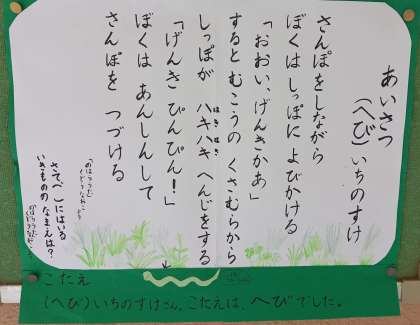 あいさつ
(へび)いちのすけ
さんぽをしながら
ぼくは しっぽに よびかける
「おおい、げんきかあ」
すると むこうの くさむらから
しっぽが ハキハキ へんじをする
はき はき
「げんき ぴんぴん!」
ぼくは あんしんして
さんぽを つづける
「のはらうた」
くどうなおこ より
さて(へび)にはいる
いきものの なまえは?
こたえ
(へび)いちのすけさん。こたえは、へびでした。